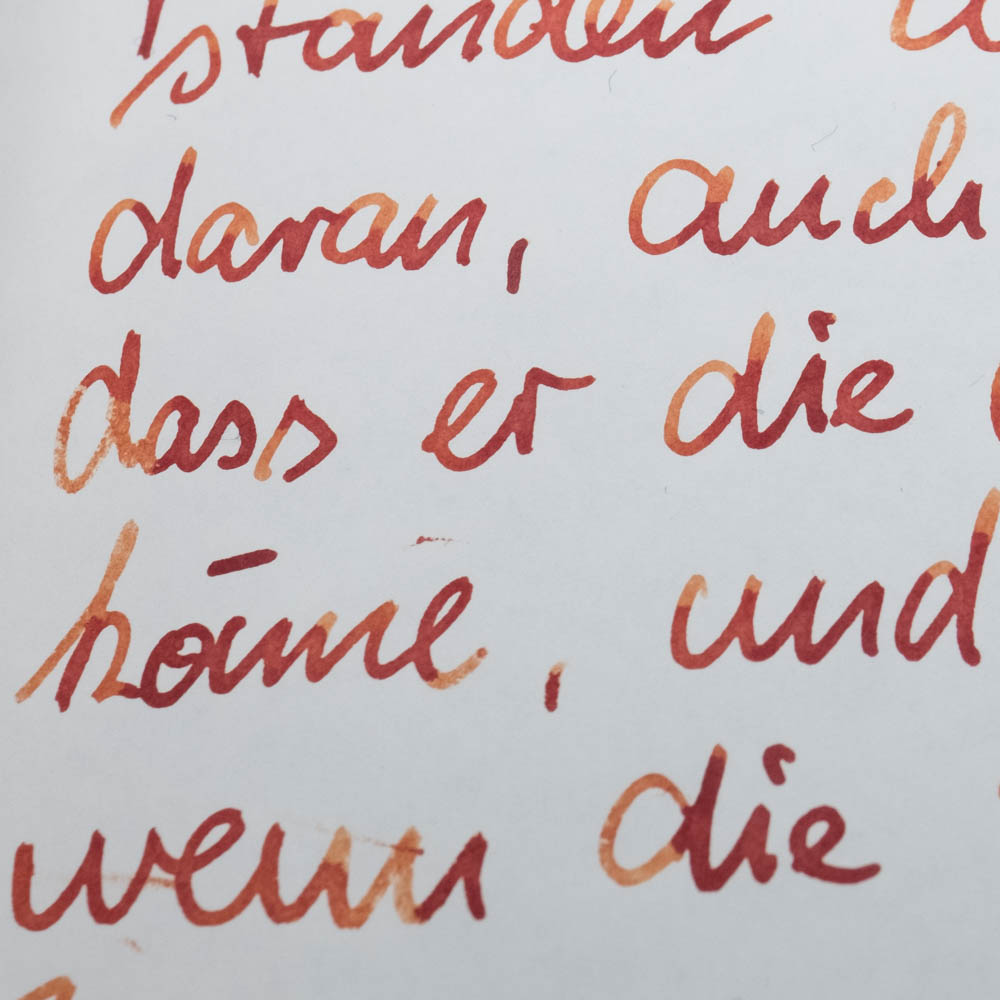 standen
daran, auch
dass er die
kom̄e, und
wenn die